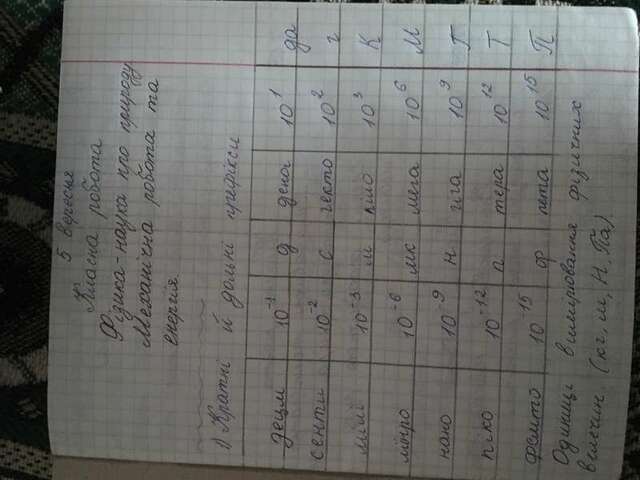 5 вересня
Класна робота
Фізика-наука про природу.
Механічна робота та
енергія
1) Кратні й дольні префікси
деци 10⁻¹ д дека 10¹ да
санти 10⁻² с гекто 10² г
мілі 10⁻³ м кіло 10³ К
мікро 10⁻⁶ мк мега 10⁶ М
нано 10⁻⁹ н гіга 10⁹ Г
піко 10⁻¹² п тера 10¹² Т
фемто 10⁻¹⁵ ф пета 10¹⁵ П
Одиниці вимірювання фізичних
величин (кг, м, Н, Па)